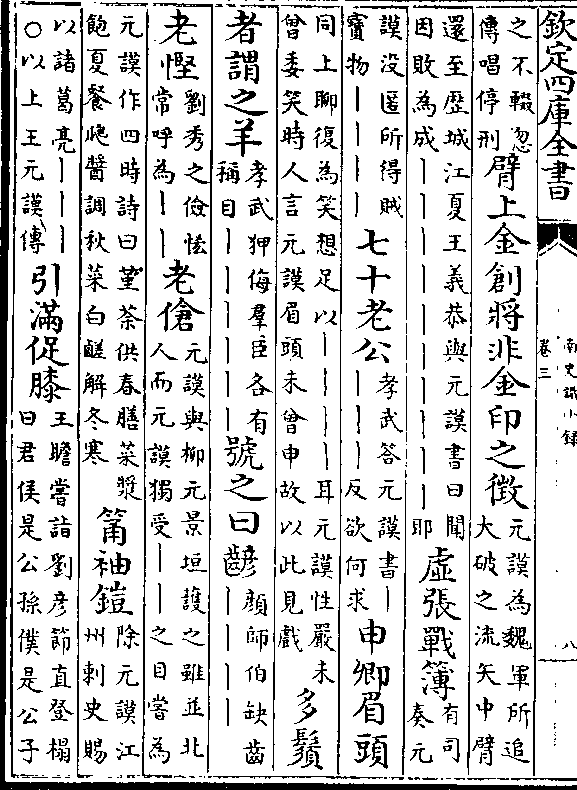 欽定四庫全書
南史識小錄
卷三
八
之不輟忽
傳唱停刑
臂上金創將非金印之徵
元謨為魏軍所追
大破之流矢中臂
還至歴城江夏王義恭與元謨書曰聞
因敗為成｜｜｜｜｜｜｜｜｜耶
虛張戰簿
有司
奏元
謨没匿所得賊
寶物｜｜｜｜
七十老公
孝武答元謨書｜
｜｜｜反欲何求
申卿眉頭
同上聊復為笑想足以｜｜｜｜耳元謨性嚴未
曾妄笑時人言元謨眉頭未曾申故以此見戲
多鬚
者謂之羊
孝武狎侮羣臣各有
稱目｜｜｜｜｜｜
號之曰齴
顔師伯缺齒
｜｜｜｜
老慳
劉秀之儉恡
常呼為｜｜
老傖
元謨與柳元景垣護之雖並北
人而元謨獨受｜｜之目嘗為
元謨作四時詩曰堇荼供春膳菜漿
飽夏餐瓟醬調秋菜白醝解冬寒
筩袖鎧
除元謨江
州刺史賜
以諸葛亮｜｜｜
○以上王元謨傳
引滿促膝
王瞻嘗詣劉彦節直登榻
曰君侯是公孫僕是公子